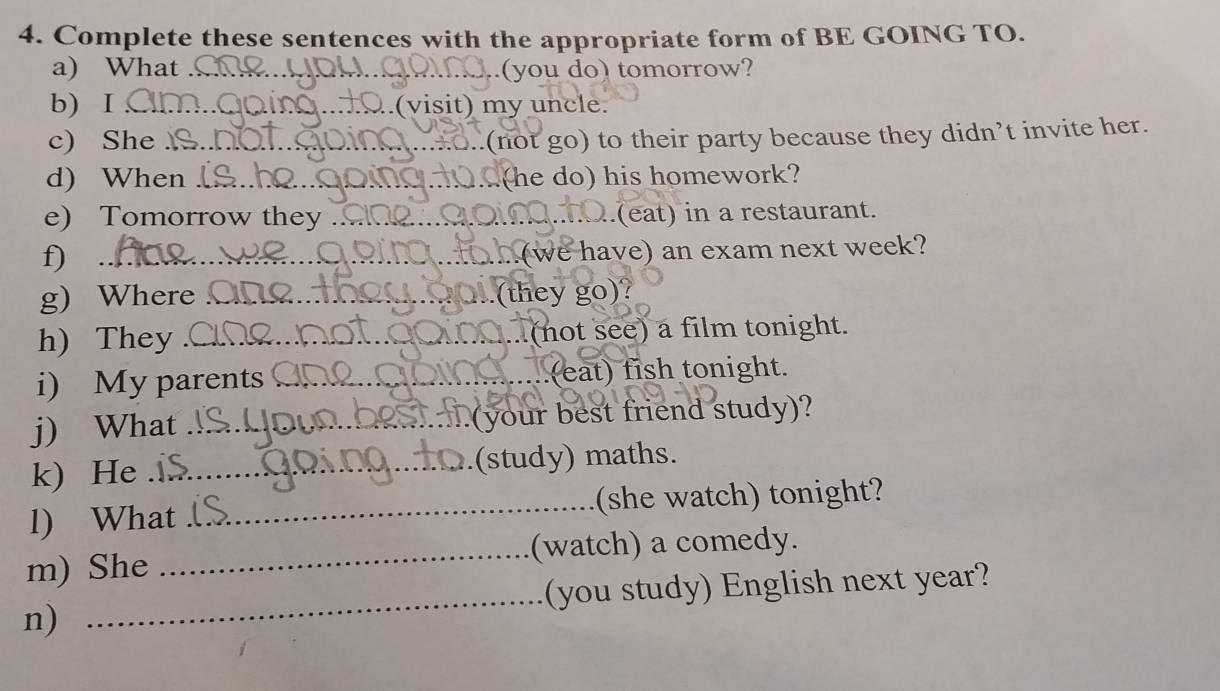 4. Complete these sentences with the appropriate form of BE GOING TO.
a) What ...are...you...going...(you do) tomorrow?
to do
b) I ...am...going...to...(visit) my uncle.
visit
c) She ...is...not...going...to...(not go) to their party because they didn't invite her.
go
d) When ...is...he...going...to do...(he do) his homework?
e) Tomorrow they ...are...going...to...(eat) in a restaurant.
eat
f) ...Are...we...going...to have...(we have) an exam next week?
g) Where ...are...they...going to go...(they go)?
h) They ...are...not...going...to...(not see) a film tonight.
see
i) My parents ...are...going...to eat...(eat) fish tonight.
j) What ...is...your...best friend going to...(your best friend study)?
k) He ...is...going...to...(study) maths.
l) What ...is...(she watch) tonight?
m) She ...(watch) a comedy.
n) ...(you study) English next year?